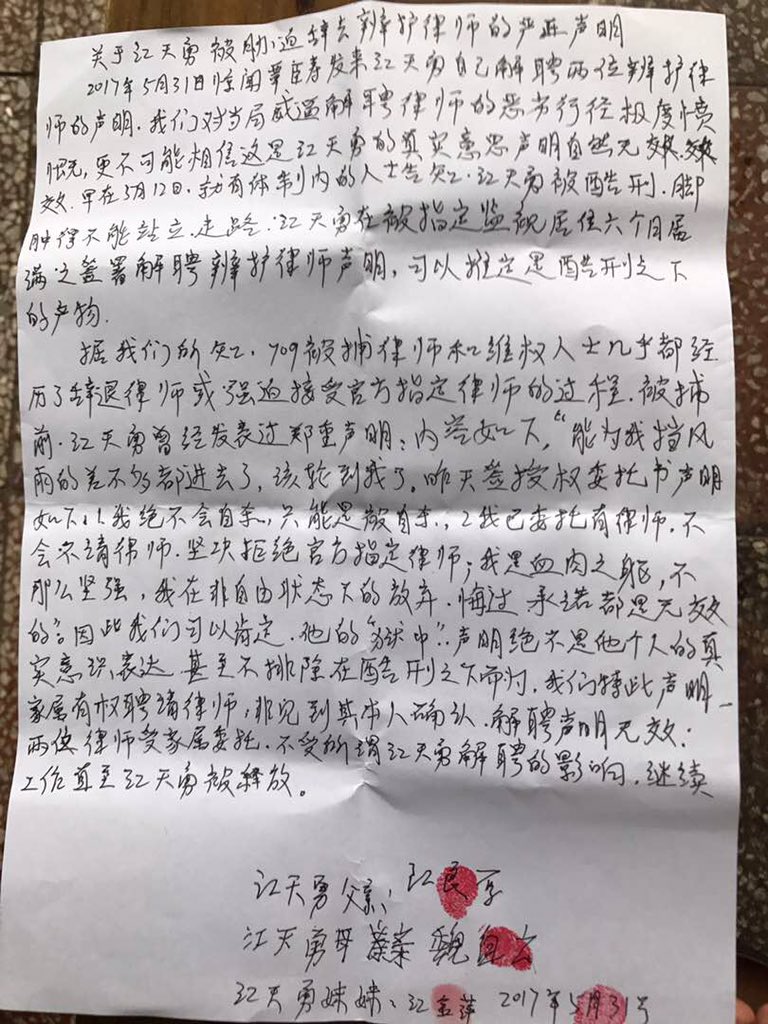 关于江天勇被胁迫辞去辩护律师的严正声明
2017年5月31日惊闻覃臣寿发来江天勇自己解聘两位辩护律
师的声明.我们对当局威逼解聘律师的恶劣行径极度愤
慨,更不可能相信这是江天勇的真实意思声明自然无效.
效.早在5月12日,就有体制内的人士告知.江天勇被酷刑.脚
肿得不能站立.走路.江天勇在被指定监视居住六个月届
满之签署解聘辩护律师声明,可以推定是酷刑之下
的产物.
据我们所知.709被捕律师和维权人士几乎都经
历了辞退律师或强迫接受官方指定律师的过程.被捕
前.江天勇曾经发表过郑重声明:内容如下,“能为我挡风
雨的差不多都进去了,该轮到我了。昨天签授权委托书声明
如下:1我绝不会自杀,只能是被自杀.,2我已委托有律师.不
会不请律师.坚决拒绝官方指定律师;我是血肉之躯,不
那么坚强,我在非自由状态下的放弃.悔过 承诺都是无效
的”;因此我们可以肯定.他的“狱中”声明绝不是他个人的真
实意识表达 甚至不排除在酷刑之下而为.我们特此声明—
家属有权聘请律师,非见到其本人确认.解聘声明无效:
两位律师受家属委托.不受所谓江天勇解聘的影响.继续
工作直至江天勇被释放。
江天勇父亲:江良厚
江天勇母亲 魏
江天勇妹妹:江金萍 2017年5月31号